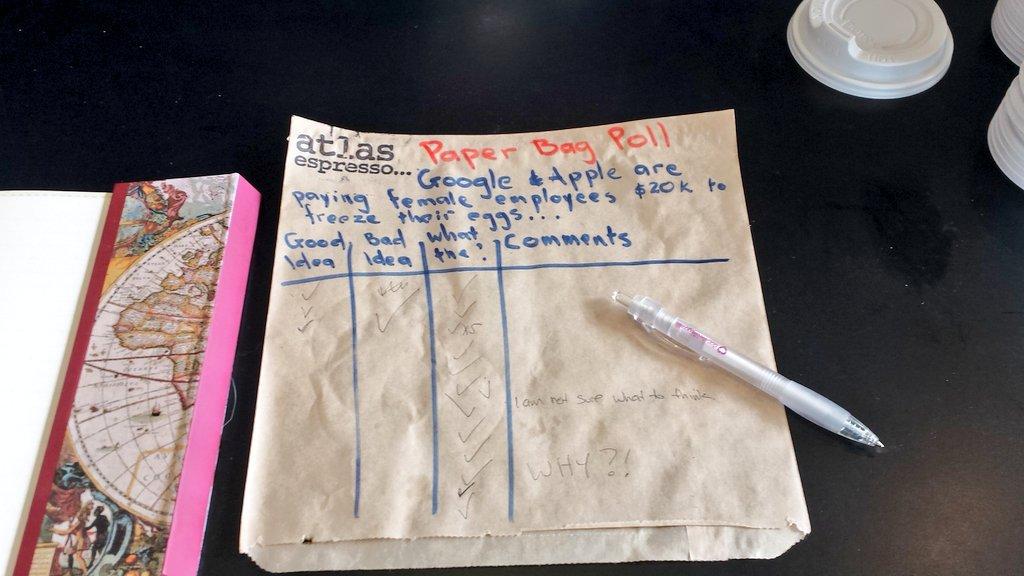 atlas
espresso...
Paper Bag Poll
Google & Apple are
paying female employees $20k to
freeze their eggs...
Good Idea
Bad Idea
What the?
Comments
x5
I am not sure what to think
WHY?!